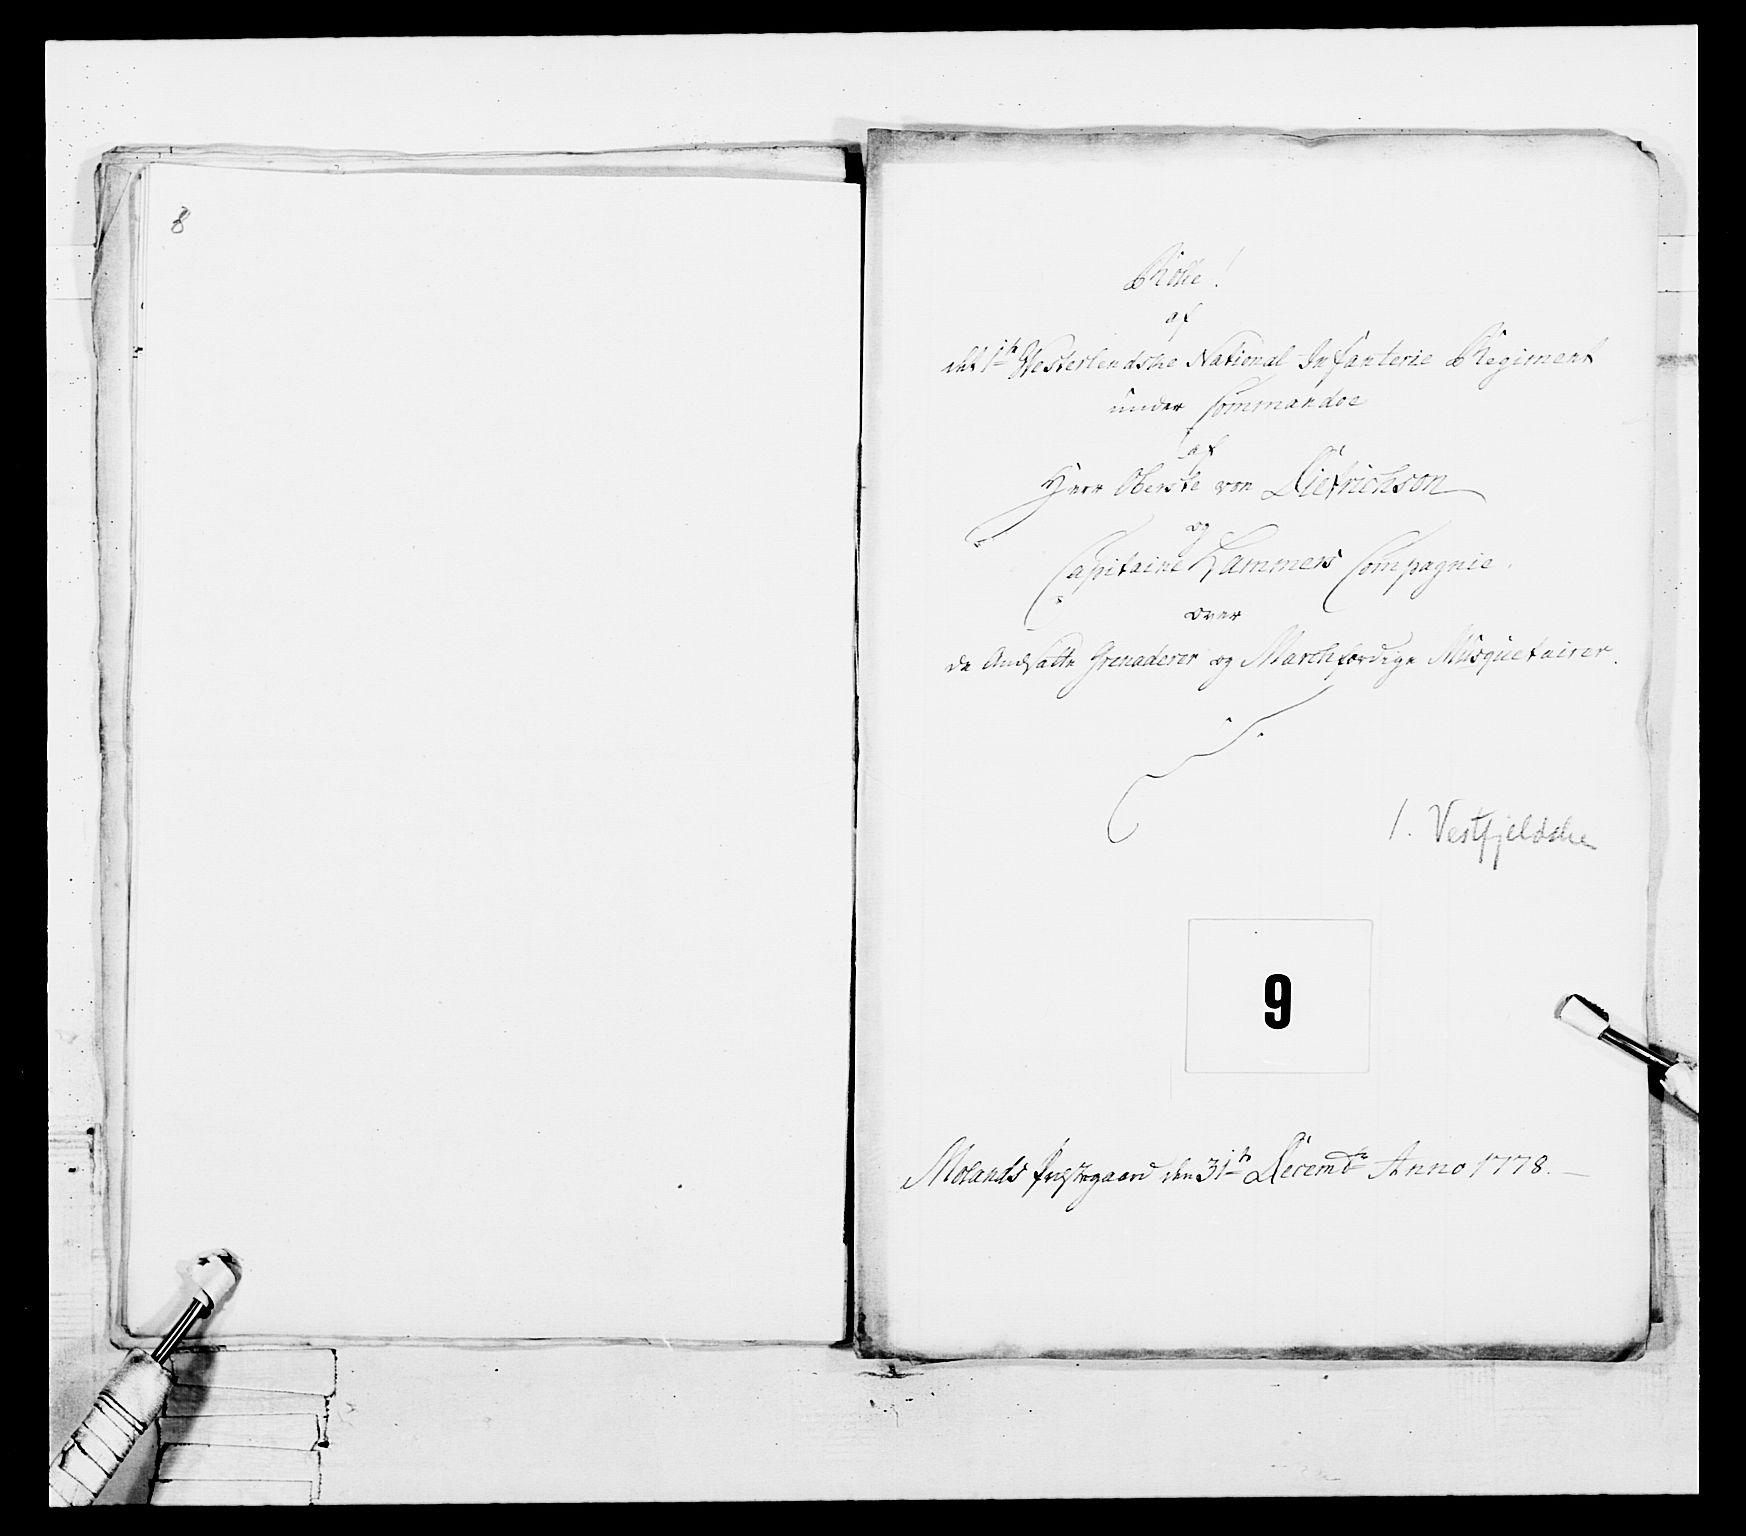 8
Rolle!
af
det 1te Westerlendske National Infanterie Regiment
under Commandoe
af
Herr Oberste von Dietrichson
og
Capitaine Lammers Compagnie.
over
de Ansatte Grenaderer og Marchfærdige Musquetairer.
1. Vestfjeldske
9
Molands Præstegaard den 31te Decembr Anno 1778.